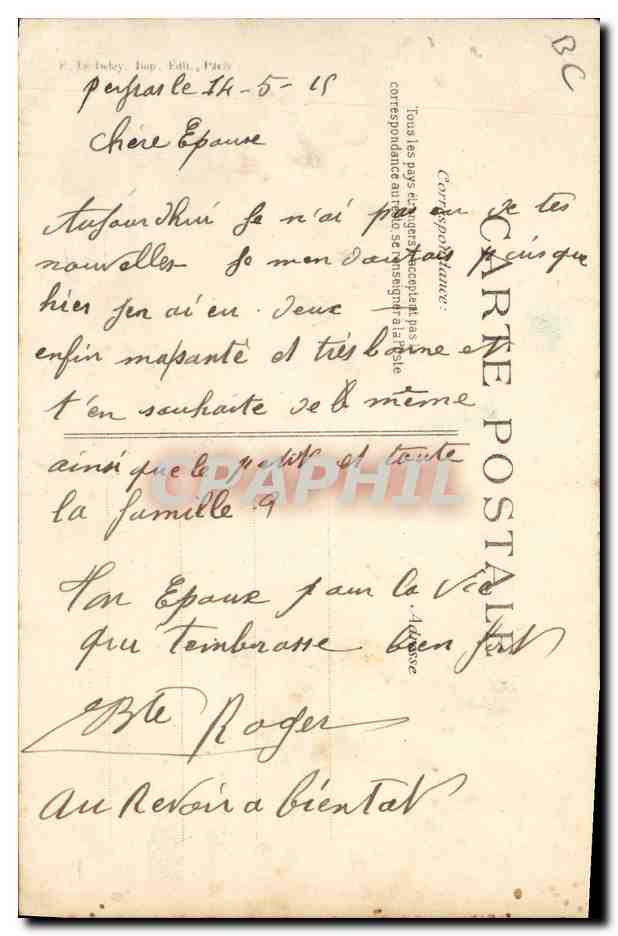 E. Le Deley, Imp. Edit., Paris
BC
le 14-5-15
chère Epouse
Aujourdhui Je n'ai pas eu de tes
nouvelles Je men doutais puisque
hier Jen ai eu deux —
enfin ma santé et très bonne et
t'en souhaite de la même
ainsi que le petit et toute
la famille
Ton Epoux pour la vie
qui tembrasse bien fort
Bte Roger
au Revoir a bientat
CARTE POSTALE
Correspondance :
Tous les pays étrangers n'acceptent pas la
correspondance au recto, se renseigner à la Poste
Adresse
CPAPHIL